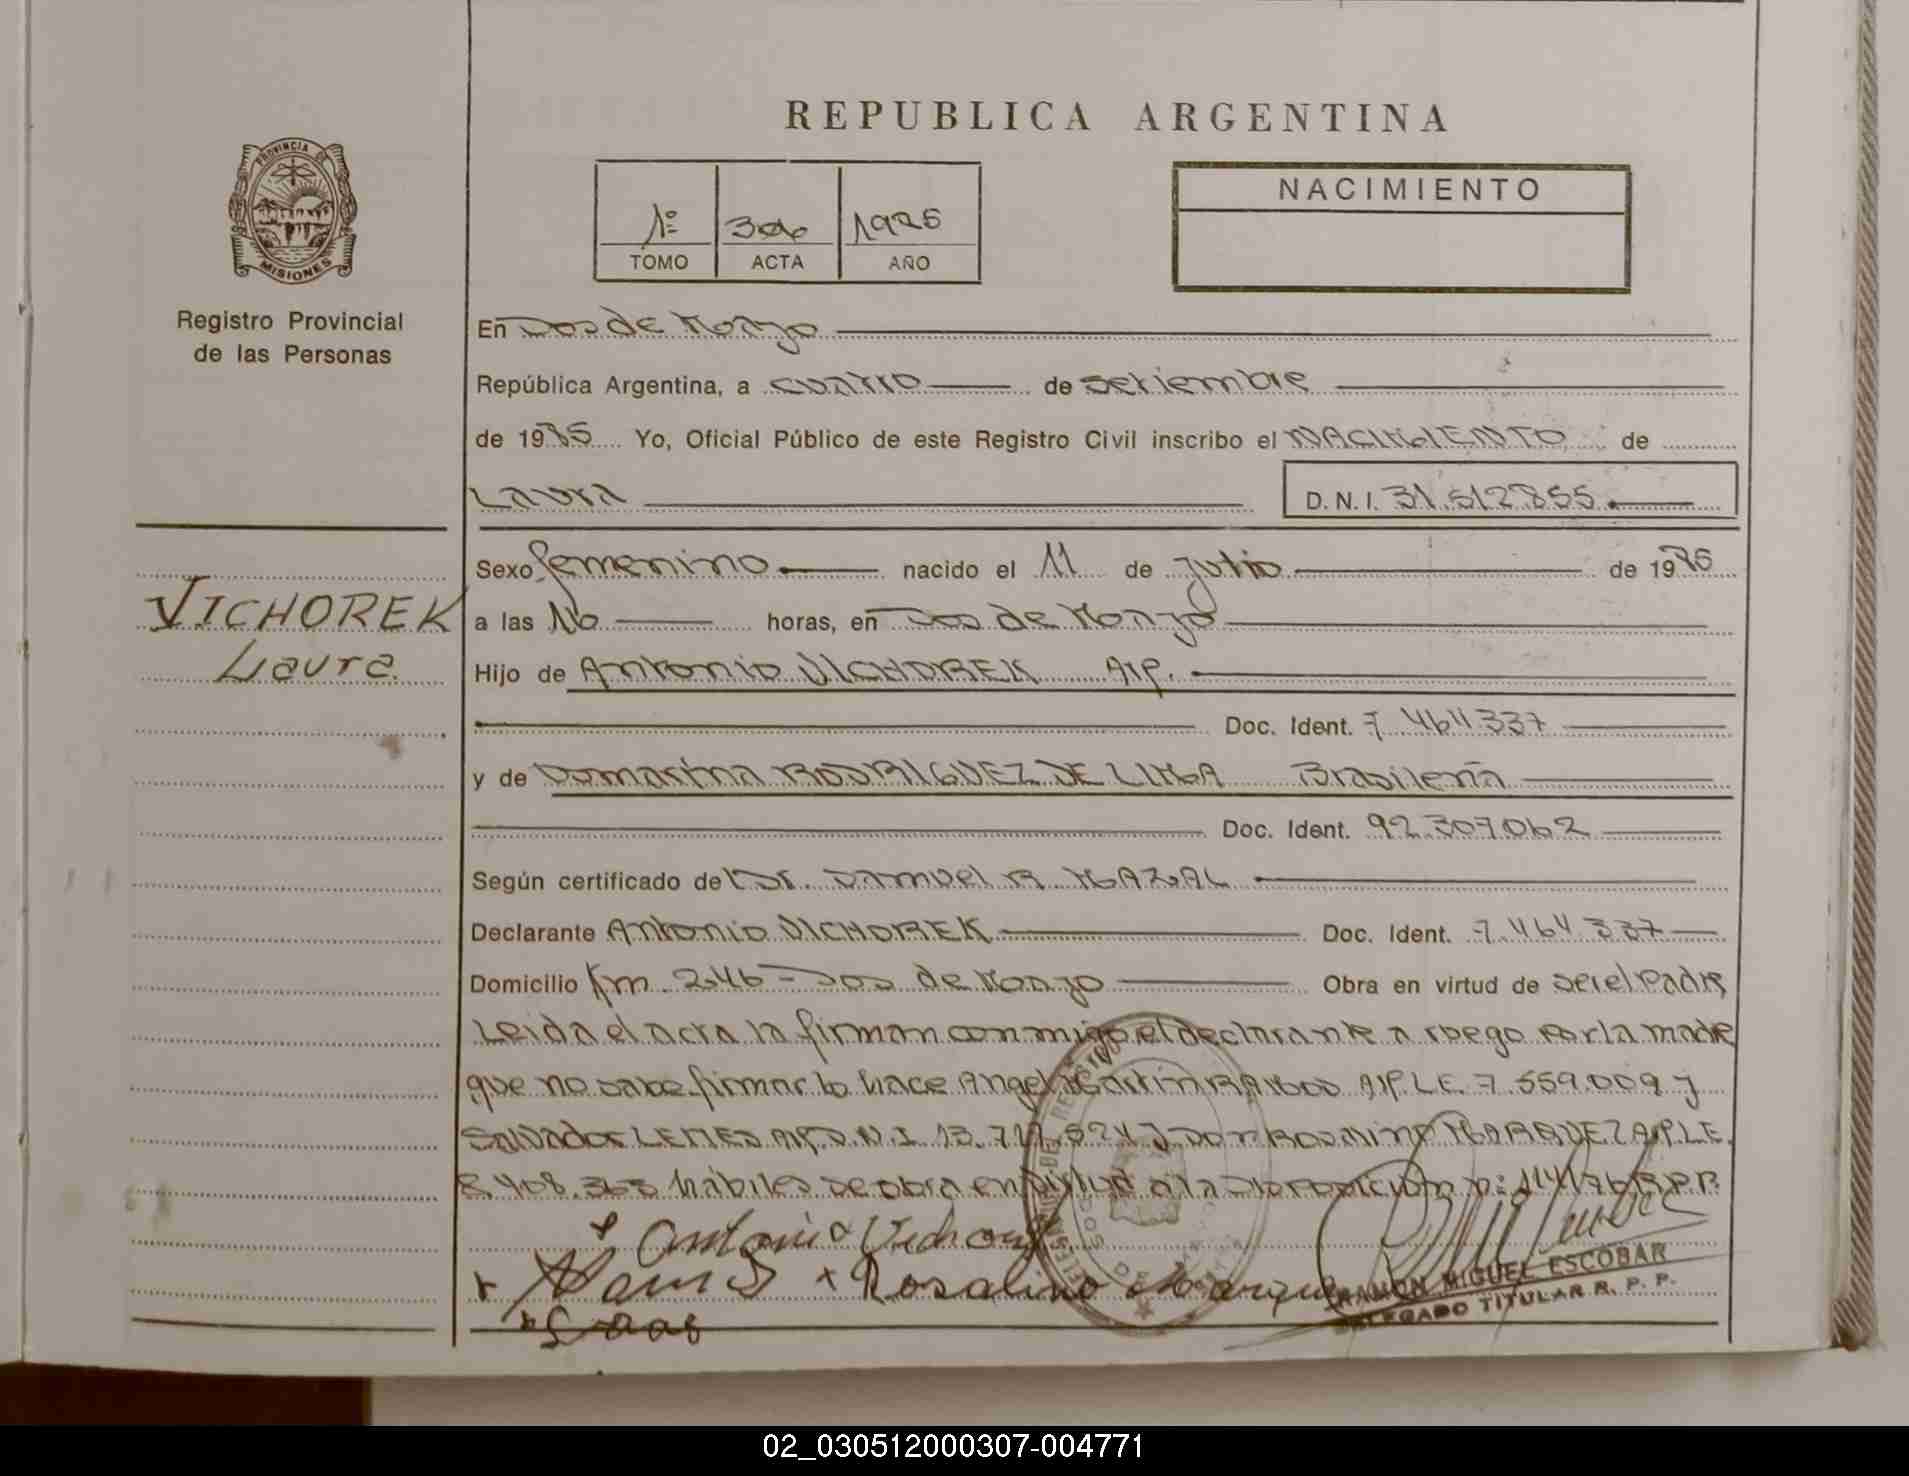 REPUBLICA ARGENTINA
PROVINCIA DE
MISIONES
Registro Provincial
de las Personas
1º 306 1985
TOMO ACTA AÑO
NACIMIENTO
En Dos de Mayo
República Argentina, a cuatro de setiembre
de 1985 Yo, Oficial Público de este Registro Civil inscribo el NACIMIENTO de
LAURA D.N.I. 31.512.855.
VICHOREK
Laura
Sexo femenino nacido el 11 de Julio de 1985
a las 16 horas, en Dos de Mayo
Hijo de Antonio VICHOREK A/P.
Doc. Ident. 7.464.337
y de Domarina RODRIGUEZ DE LIMA Brasileña
Doc. Ident. 92.307.062
Según certificado de Dr. Samuel R. MAZAL
Declarante Antonio VICHOREK Doc. Ident. 7.464.337
Domicilio Km. 246 - Dos de Mayo Obra en virtud de ser el Padre
Leida el acta la firman conmigo el declarante a ruego por la madre
que no sabe firmar lo hace Angel Martin RAMOS A/P. L.E. 7.559.009 y
Salvador LEMES A/P. D.N.I. 13. y Don ROSALINO MARQUEZ A/P. L.E.
8.408.363 hábiles se obra en virtud a la Disposición n: 114/76 R.P.P.
Antonio Vichorek
Ramos x Rosalino Marque
RAMON MIGUEL ESCOBAR
DELEGADO TITULAR R. P. P.
02_030512000307-004771